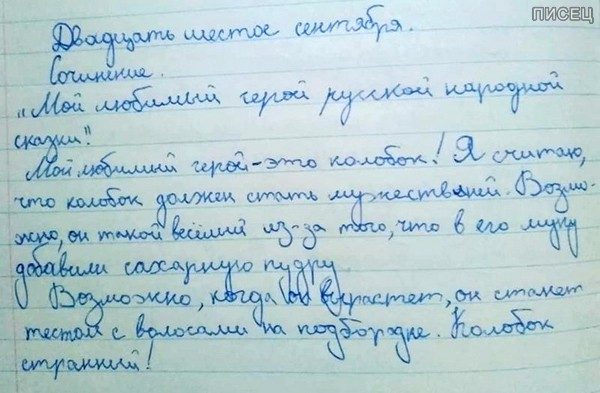 ПИСЕЦ
Двадцать шестое сентября.
Сочинение.
"Мой любимый герой русской народной
сказки".
Мой любимый герой - это колобок! Я считаю,
что колобок должен стать мужественей. Возмо-
жно, он такой весёлый из-за того, что в его муку
добавили сахарную пудру.
Возможно, когда он вырастет, он станет
тестом с волосами на подбородке. Колобок
странный!